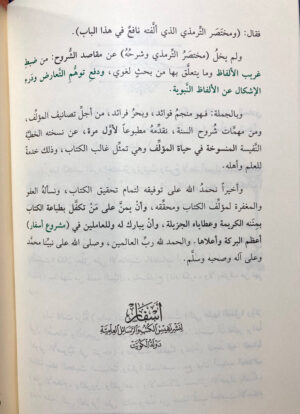 فقال: (ومختَصَر التِّرمذي الذي ألَّفته نافعٌ في هذا الباب).
ولم يخلُ (مختصَرُ التِّرمذي وشرحُهُ) عن مقاصد الشُّروح: من ضبطِ
غريب الألفاظ وما يتعلَّق بها من بحثٍ لغوي، ودفعِ توهُّم التَّعارض ودرءِ
الإشكال عن الألفاظ النَّبوية.
وبالجملة: فهو منجمُ فوائد، وبحرُ فرائد، من أجلِّ تصانيف المؤلِّف،
ومن مهمَّات شُروح السنة، نقدِّمه مطبوعاً لأوَّل مرة، عن نسخته الخطيَّة
النَّفيسة المنسوخة في حياة المؤلِّف وهي تمثِّل غالب الكتاب، وذلك خدمةً
للعلم وأهله.
وأخيراً نحمدُ الله على توفيقه لتمام تحقيق الكتاب، ونسألهُ العفو
والمغفرة لمؤلف الكتاب ومحقِّقه، وأنْ يمنَّ على مَنْ تكفَّل بطباعة الكتاب
بمِننه الكريمة وعطاياه الجزيلة، وأنْ يبارك له وللعاملين في (مشروع أسفار)
أعظم البركة وأعلاها. والحمد لله ربِّ العالمين، وصلى الله على نبيِّنا محمَّد
وعلى آله وصحبه وسلَّم.
أسفار
لنشر نفيس الكتب والرسائل العلمية
دولة الكويت